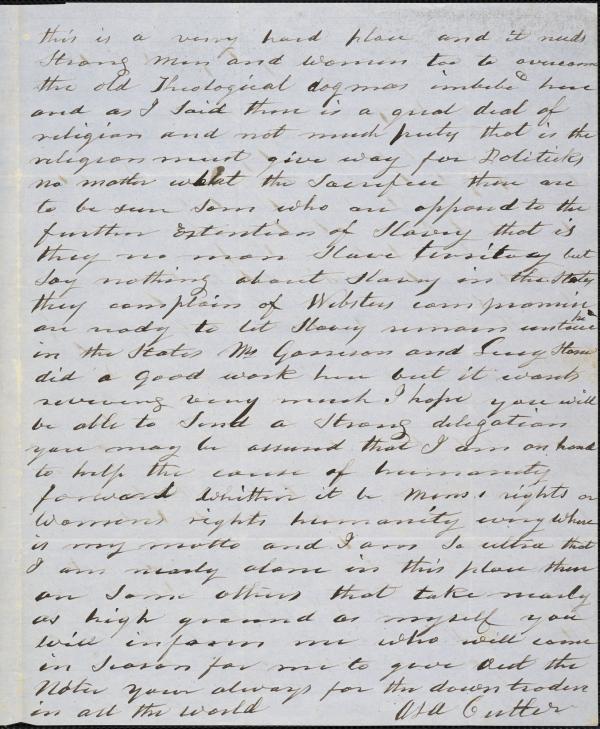 this is a very hard place and it needs
Strong Men and women too to overcome
the old Theological dogmas imbibed here
and as I Said there is a great deal of
religion and not much piety that is the
religion must give way for Politicks
no matter what the Sacrifice there are
to be sure Some who are opposed to the
further Extention of Slavery that is
they no more Slave territory but
Say nothing about Slavery in the States
they complain of Websters compromise
are ready to let Slavery remain
in the States Mr Garrison and Lucy Stone
did a Good work here but it wants
reviving very much I hope you will
be able to Send a Strong delegation
you may be assured that I am on hand
to help the cause of humanity
forward Whither it be Mens rights or
Womens rights humanity every where
is my motto and I am So ultra that
I am nearly alone in this place there
are Some others that take nearly
as high ground as myself you
will inform me who will come
in Season for me to give out the
Notice your always for the downtroden
in all the world Asa Cutler